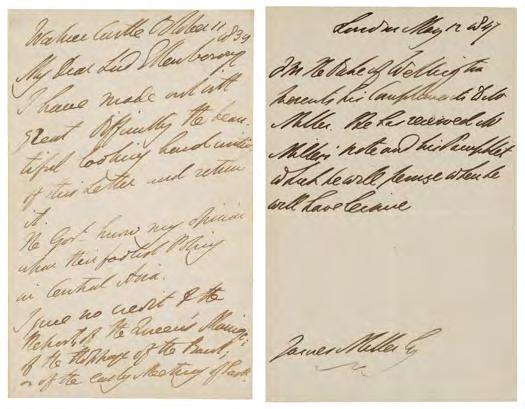 Walmer Castle October 11 1839
My Dear Lord Ellenborough
I have made out with
great difficulty the beau-
tiful looking hand
of this Letter and return
it.
The Govt know my opinion
upon their foolish Policy
in Central Asia.
I give no credit to the
Report of the Queen's Marriage;
of the of the Bank;
or of the early Meeting of Parlt.
London May 12 1847
FM the Duke of Wellington
presents his Compliments to Mr
Miller. He has received Mr
Miller's note and his Pamphlet
which he will peruse when he
will have leisure
James Miller Esq